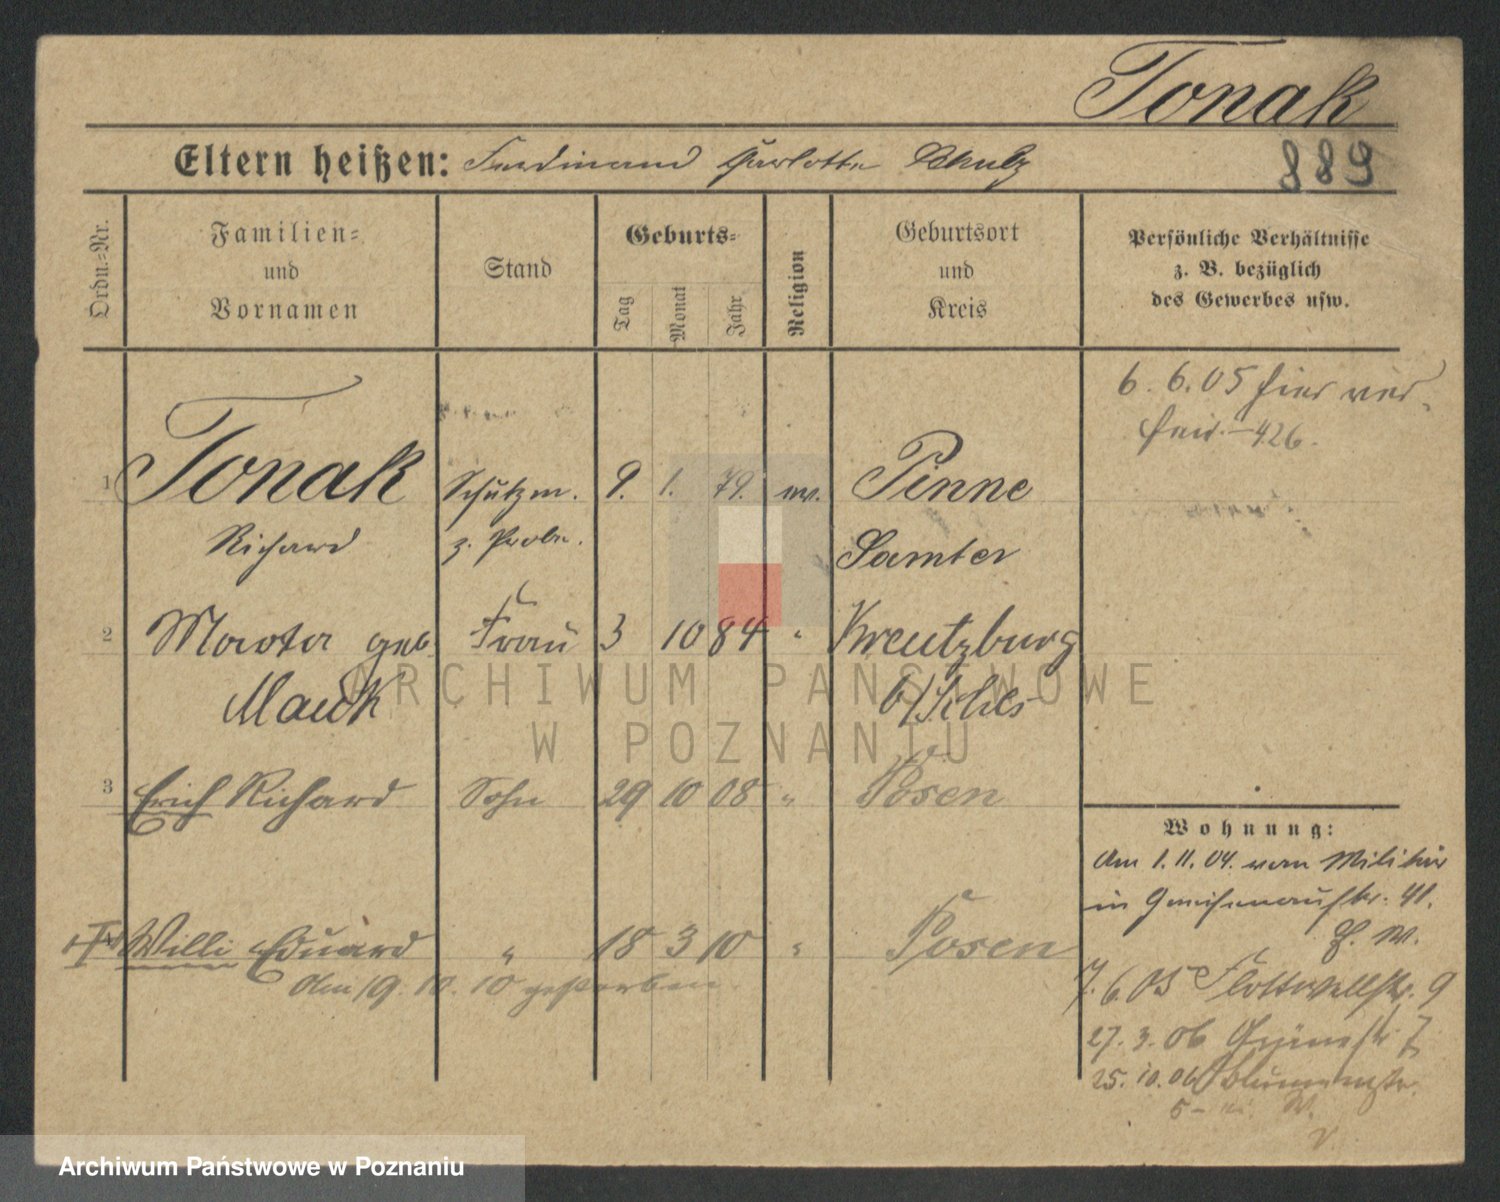 Tonak
Eltern heißen: Ferdinand Charlotte Schulz
889
Ordn.-Nr.
Familien-
und
Vornamen
Stand
Geburts-
Tag
Monat
Jahr
Religion
Geburtsort
und
Kreis
Persönliche Verhältnisse
z. B. bezüglich
des Gewerbes usw.
6. 6. 05 hier ver-
heir. - 426.
1 Tonak Schutzm. 9. 1. 79. ev. Pinne
Richard z. Probe. Samter
2 Marta geb. Frau 3 10 84 " Kreutzburg
Mauk O/Schles
3 Erich Richard Sohn 29 10 08 " Posen
Wohnung:
Am 1. 11. 04. vom Militär
in Gneisenaustr. 41.
4 Willi Eduard " 18 3 10 " Posen
Am 19. 10. 10 gestorben
7. 6. 05 Flottwellstr. 9
27. 3. 06 Grünestr 7
25. 10. 06 Blumenstr.
5 - W.
ARCHIWUM PAŃSTWOWE
W POZNANIU
Archiwum Państwowe w Poznaniu